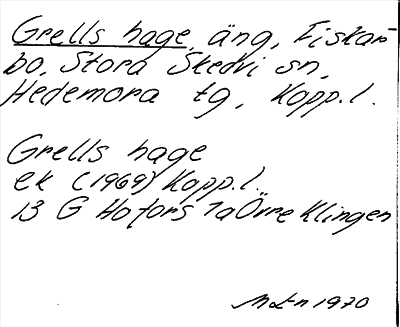 Grells hage, äng, Fiskar-
bo, Stora Skedvi sn,
Hedemora tg, Kopp.l.
Grells hage
ek (1969) Kopp.l.
13 G Hofors 7a Övre Klingen
1970